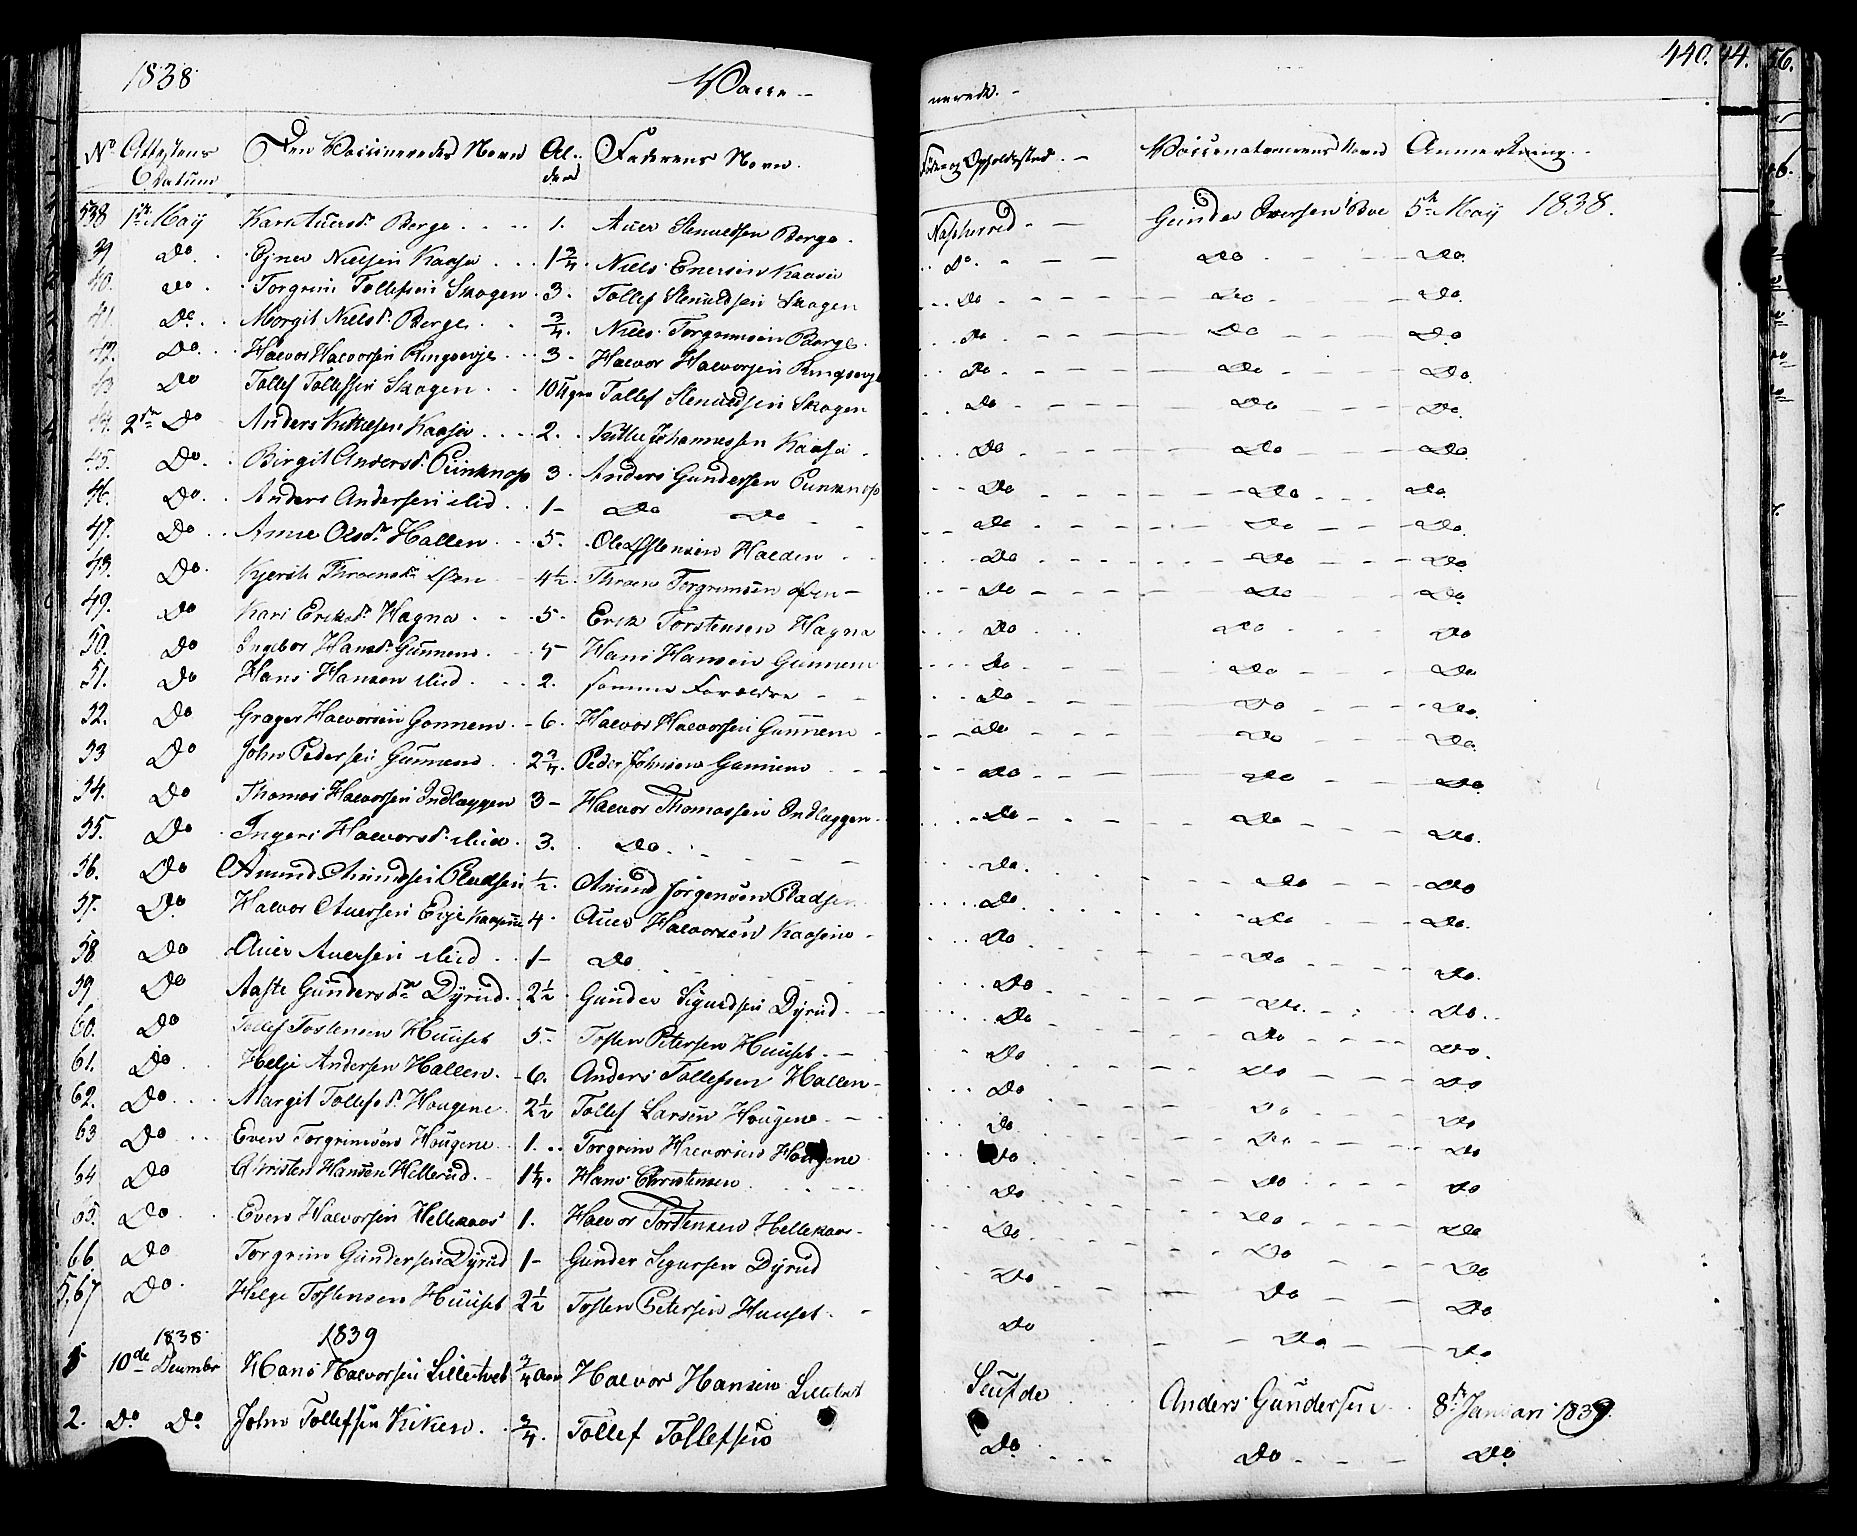 1838 Vacci- nerede. 440. 44. 56.
No Attestens Datum Den Vaccineredes Navn Alder Faderens Navn. Føde og Opholdssted. Vaccinateurens Navn Anmerkning.
538 1ste May Kari Auersdr Berge 1. Auer Stenulfsen Berge. Gunder Iversen Boe 5te May 1838.
39 Do. Ejner Nielsen Kaasa 1 3/4 Niels Enersen Kaasa Do. Do Do.
40. Do. Torgrim Tollefsen Skogen 3. Tollef Stenulfsen Skogen Do Do Do.
41. Do. Margit Nielsdr Berge 3/4. Niels Torgrimsen Berge. Do Do Do
42. Do. Halvor Halvorsen Ringsevje 3. Halvor Halvorsen Ringsevje Do Do Do.
43 Do Tollef Tollefsen Skogen 10 Uger Tollef Stenulfsen Skogen Do Do Do.
44. 2den Do Anders Kittelsen Kaasa 2. Kittel Johannessen Kaasa Do Do Do.
45. Do. Birgit Andersdr 3. Anders Gundersen Do Do Do
46. Do. Anders Andersen ibid 1- Do Do Do Do Do.
47. Do Anne Olsdr Hallen 5. Ole Halden Do Do Do.
48. Do. Kjersti Throensdr 4 1/2. Throen Torgrimsen Do Do Do.
49. Do Kari Eriksdr Hagna 5. Erik Torstensen Hagna Do Do Do
50. Do Ingebor Hansdr Gunnem 5 Hans Hansen Gunnem Do Do Do
51. Do Hans Hansen ibid 2. samme Forældre Do Do Do.
52. Do Grager Halvorsen Gonnem 6. Halvor Halvorsen Gunnem Do Do Do.
53 Do John Pedersen Gunnem 2 3/4. Peder Johnsen Gunnem Do Do Do.
54. Do Thomas Halvorsen Indlæggen 3- Halvor Thomassen Indlæggen Do Do Do.
55. Do Ingeri Halvorsdr ibid 3. Do. Do. Do Do
56. Do Amund Amundsen Pladsen 1/2. Amund Jørgensen Pladsen Do Do Do.
57. Do. Halvor Auersen Evje 4. Auer Halvorsen Kaasene Do Do Do.
58 Do Auer Auersen ibid 1- Do Do Do. Do.
59 Do Aaste Gundersdr Dyrud 2 1/2. Gunder Sigurdsen Dyrud Do Do Do.
60. Do Tollef Tostensen Huuset 5- Tosten Petersen Huuset. Do Do Do.
61. Do Helje Andersen Hallen. 6. Anders Tollefsen Hallen Do Do Do
62. Do. Margit Tollefsdr Hougene 2 1/2 Tollef Larsen Hougene Do Do Do
63 Do Even Torgrimsen Hougene 1. Torgrim Halvorsen Hougene Do Do Do
64 Do Christen Hansen Hellerud. 1 1/4. Hans Christensen Do Do Do
65. Do Even Halvorsen Hellekaas 1. Halvor Torstensen Hellekaas Do Do Do
66 Do Torgrim Gundersen Dyrud 1- Gunder Sigursen Dyrud Do Do Do
567 Do. Helge Tostensen Huuset 2 1/2 Tosten Petersen Huuset. Do Do Do.
1838 1839
10de December Hans Halvorsen Lilletvet 3/4 Aar Halvor Hansen Lilletvet Anders Gundersen 8de Januari 1839.
2. Do Do. John Tollefsen Kiken 3/4. Tollef Tollefsen Do. Do Do.